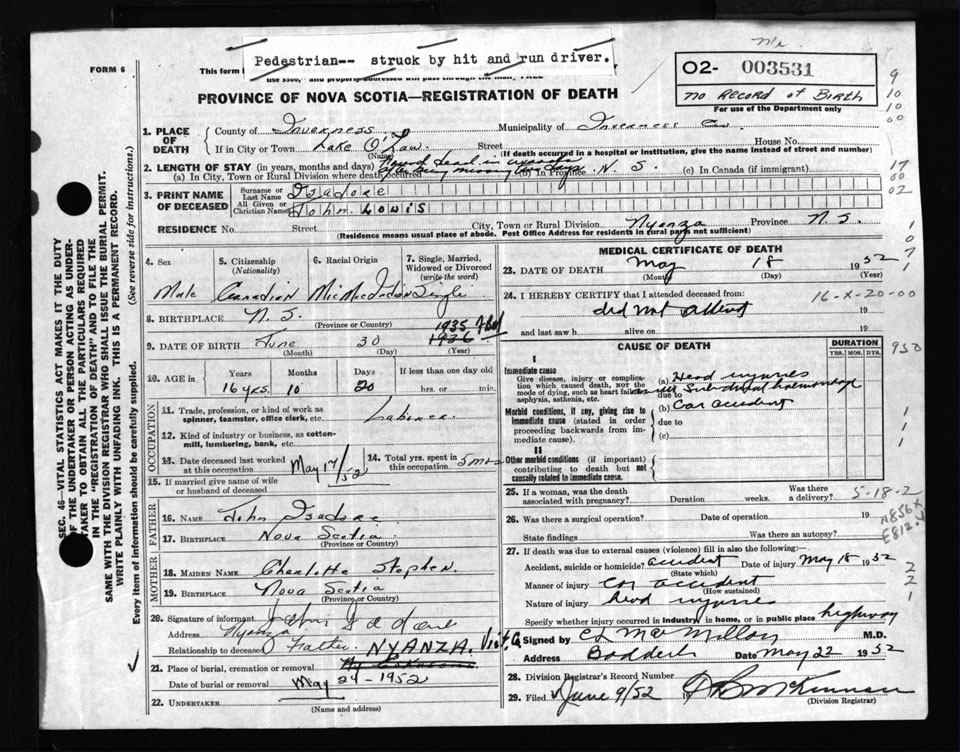 Pedestrian-- struck by hit and run driver.
FORM 6
This form
02- 003531
No Record of Birth
For use of the Department only
PROVINCE OF NOVA SCOTIA—REGISTRATION OF DEATH
1. PLACE OF DEATH
County of Inverness Municipality of Inverness Co
If in City or Town Lake O'Law Street House No.
(Name) (If death occurred in a hospital or institution, give the name instead of street and number)
2. LENGTH OF STAY (in years, months and days) found dead in
(a) In City, Town or Rural Division where death occurred (b) In Province N. S. (c) In Canada (if immigrant)
3. PRINT NAME OF DECEASED
Surname or Last Name Isadore
All Given or Christian Names John Louis
RESIDENCE No. Street City, Town or Rural Division Nyanza Province N. S.
(Residence means usual place of abode. Post Office Address for residents in rural parts not sufficient)
4. Sex Male
5. Citizenship (Nationality) Canadian
6. Racial Origin Mic Mac Indian
7. Single, Married, Widowed or Divorced (write the word) Single
8. BIRTHPLACE N. S.
(Province or Country)
9. DATE OF BIRTH June 30 1935 1936
(Month) (Day) (Year)
10. AGE in Years Months Days If less than one day old
16 yrs. 10 20 hrs. or min.
11. Trade, profession, or kind of work as spinner, teamster, office clerk, etc. Laborer
12. Kind of industry or business, as cotton-mill, lumbering, bank, etc.
OCCUPATION
13. Date deceased last worked at this occupation May 17/52
14. Total yrs. spent in this occupation 5 mos
15. If married give name of wife or husband of deceased
FATHER
16. NAME John Isadore
17. BIRTHPLACE Nova Scotia
(Province or Country)
MOTHER
18. MAIDEN NAME Charlotte Stephen
19. BIRTHPLACE Nova Scotia
(Province or Country)
20. Signature of informant John Isadore
Address Nyanza
Relationship to deceased Father
NYANZA. Vict. Co
21. Place of burial, cremation or removal
Date of burial or removal May 24-1952
22. UNDERTAKER
(Name and address)
MEDICAL CERTIFICATE OF DEATH
23. DATE OF DEATH May 18 1952
(Month) (Day) (Year)
24. I HEREBY CERTIFY that I attended deceased from:
16-X-20-00
did not attend 19
and last saw h alive on 19
CAUSE OF DEATH
DURATION
YRS. MOS. DYS.
I
Immediate cause
Give disease, injury or complication which caused death, not the mode of dying, such as heart failure, asphyxia, asthenia, etc.
(a) Head injuries
due to Subdural haemorrhage
Morbid conditions, if any, giving rise to immediate cause (stated in order proceeding backwards from immediate cause).
(b) Car accident
due to
(c)
II
Other morbid conditions (if important) contributing to death but not causally related to immediate cause.
25. If a woman, was the death associated with pregnancy? Duration weeks. Was there a delivery?
5-18-2
26. Was there a surgical operation? Date of operation 19
State findings Was there an autopsy?
N856X
E812.
27. If death was due to external causes (violence) fill in also the following:
Accident, suicide or homicide? accident Date of injury May 18 1952
(State which)
Manner of injury Car accident
(How sustained)
Nature of injury head injuries
Specify whether injury occurred in industry, in home, or in public place highway
Signed by C L MacMillan M.D.
Address Baddeck Date May 22 1952
28. Division Registrar's Record Number
29. Filed June 9/52
(Division Registrar)
SEC. 46—VITAL STATISTICS ACT MAKES IT THE DUTY
OF THE UNDERTAKER OR PERSON ACTING AS UNDERTAKER TO OBTAIN ALL THE PARTICULARS REQUIRED
IN THE "REGISTRATION OF DEATH" AND TO FILE THE
SAME WITH THE DIVISION REGISTRAR WHO SHALL ISSUE THE BURIAL PERMIT.
WRITE PLAINLY WITH UNFADING INK. THIS IS A PERMANENT RECORD.
Every item of information should be carefully supplied. (See reverse side for instructions.)